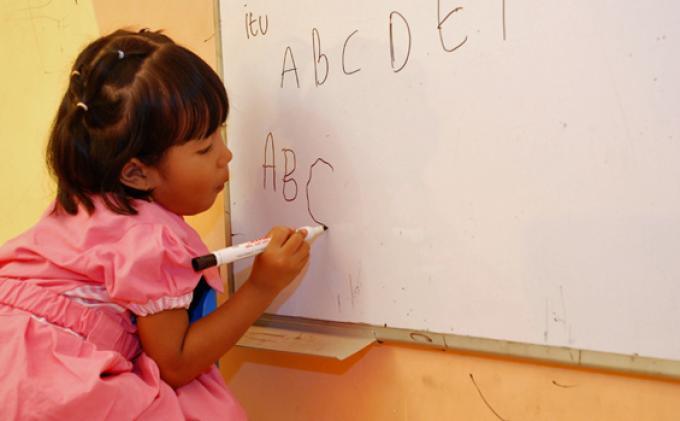 itu
A B C D E
A B C